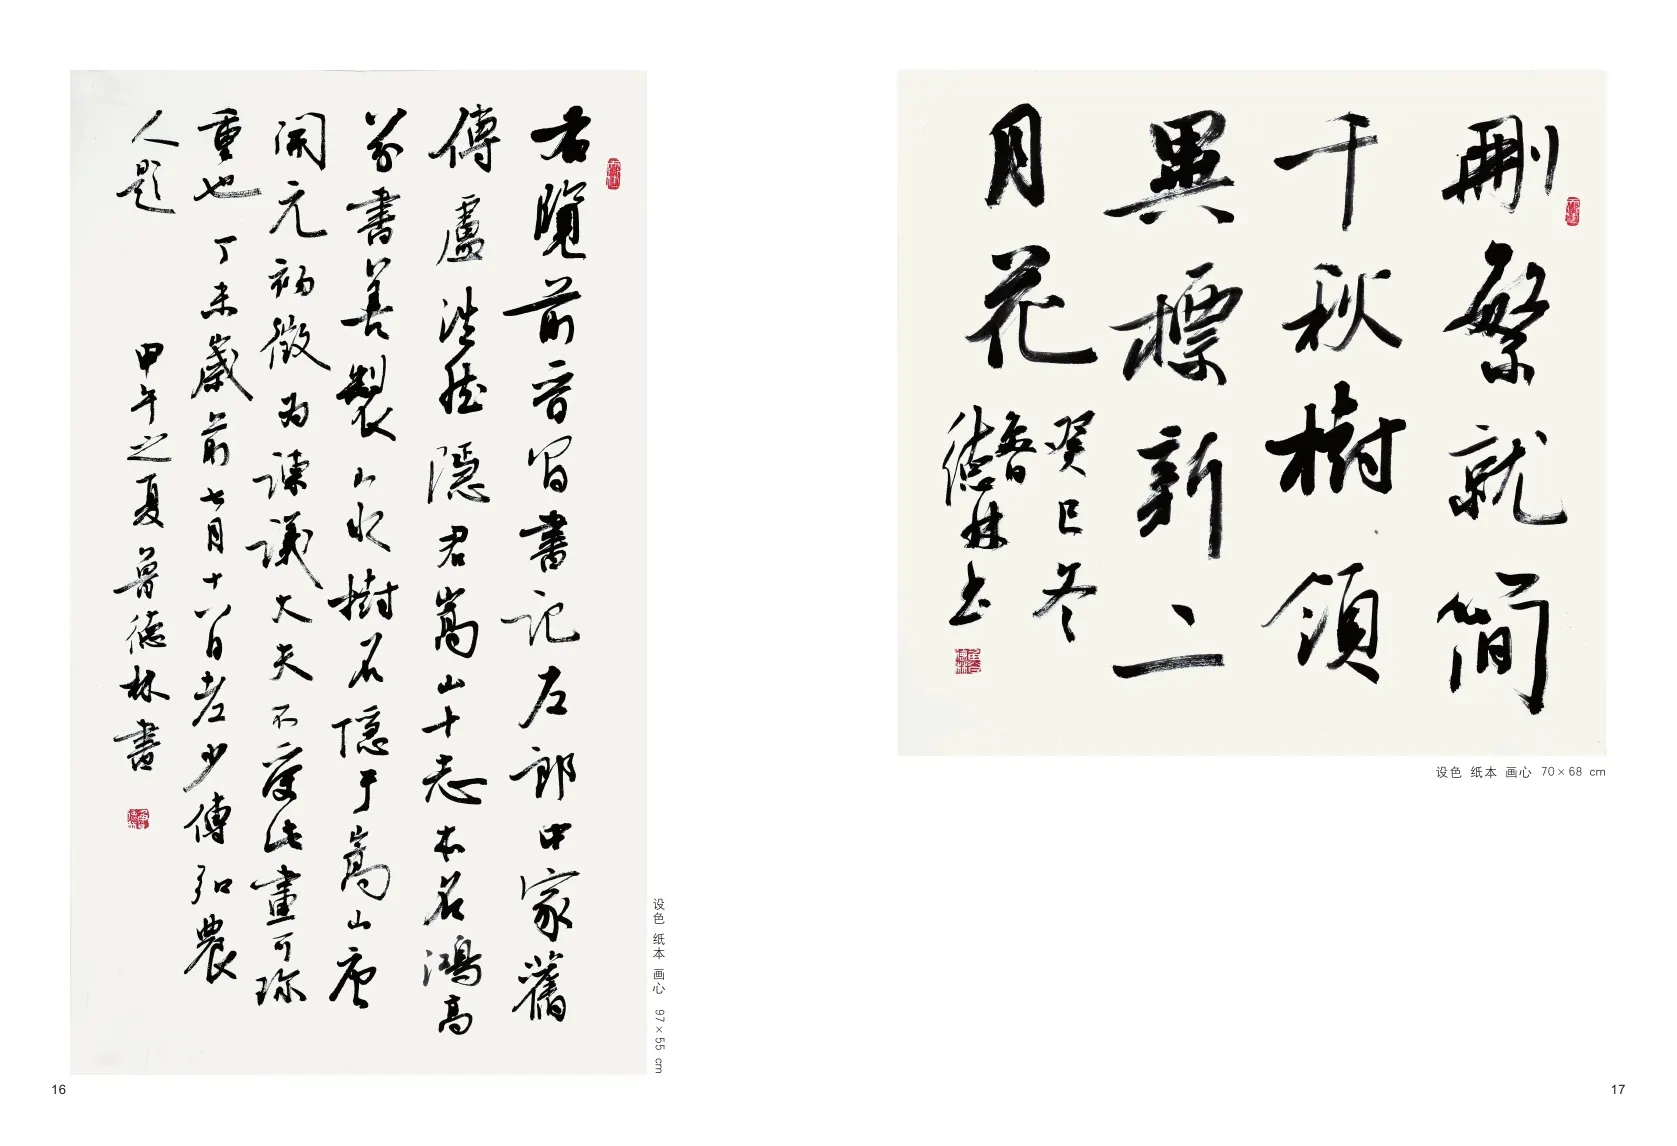 右覽前晉昌書記左郎中家舊
傳盧浩然隱君嵩山十志本名鴻高
八分書善製山水樹石隱于嵩山唐
開元初徵為諫議大夫不受此畫可珍
重也 丁未歲前七月十八日老少傅弘農
人題 甲午之夏 魯德林書
设色 纸本 画心 97×55 cm
16
刪繁就簡
千秋樹領
異標新二
月花
癸巳冬
魯德林书
设色 纸本 画心 70×68 cm
17